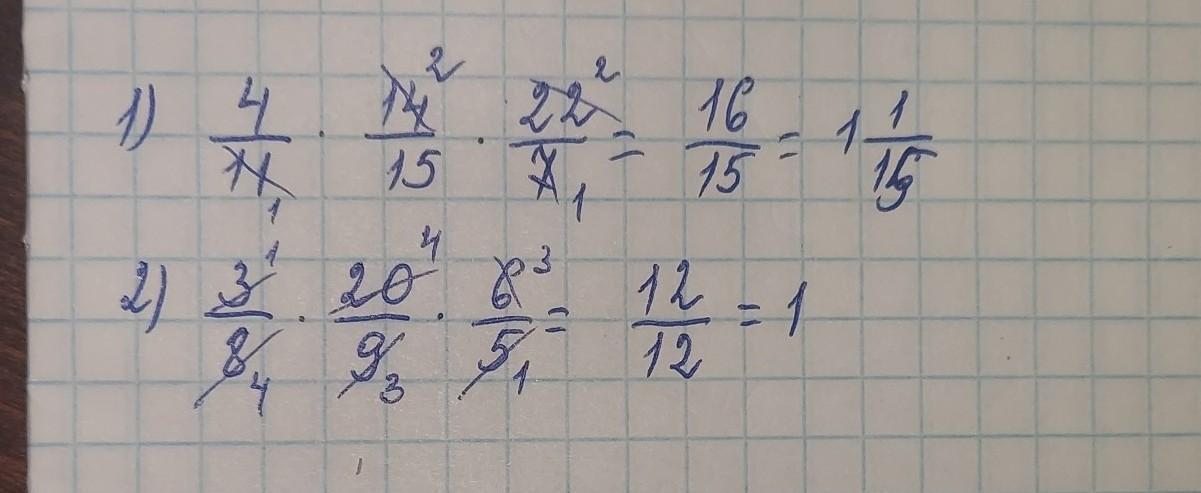 1) 4/11 1 · 14 2/15 · 22 2/7 1 = 16/15 = 1 1/15
2) 3 1/8 4 · 20 4/9 3 · 6 3/5 1 = 12/12 = 1